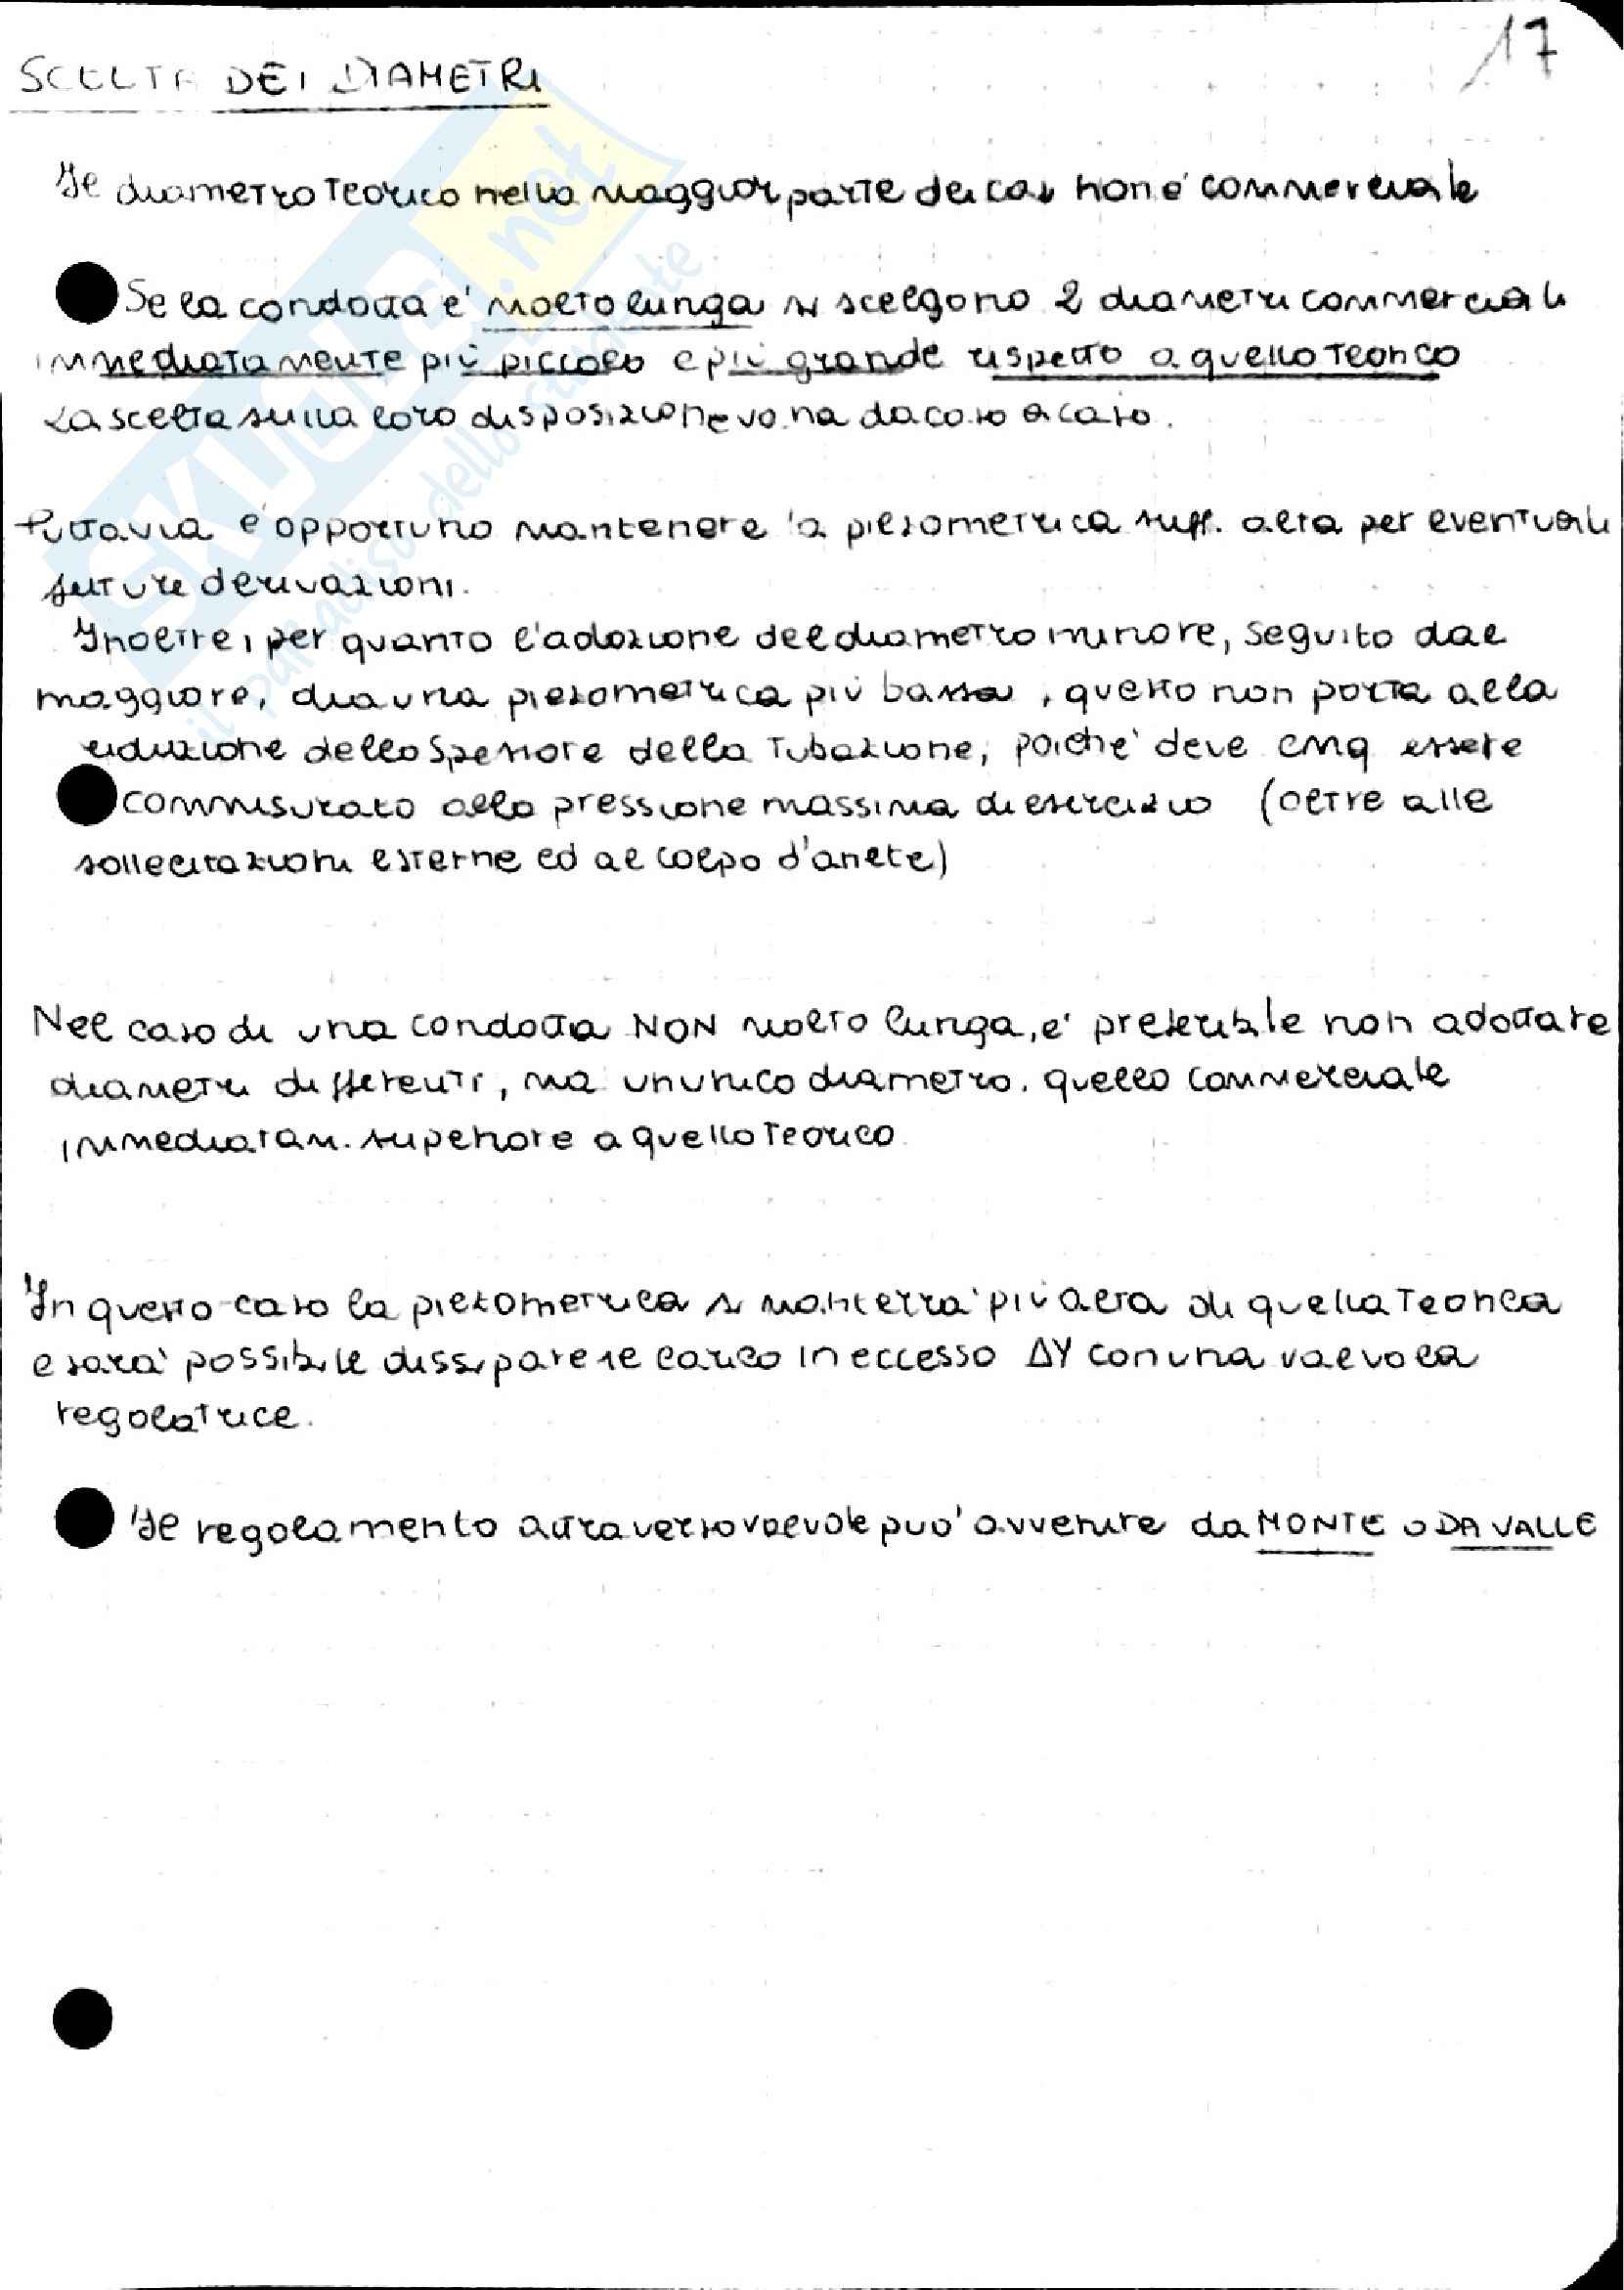 17
SCELTA DEI DIAMETRI
Il diametro teorico nella maggior parte dei casi non è commerciale
Se la condotta e' molto lunga si scelgono 2 diametri commerciali
immediatamente più piccolo e più grande rispetto a quello teorico
La scelta sulla loro disposizione va da caso a caso.
Tuttavia e' opportuno mantenere la piezometrica suff. alta per eventuali
future derivazioni.
Inoltre, per quanto l'adozione del diametro minore, seguito dal
maggiore, dia una piezometrica più bassa, questo non porta alla
riduzione dello spessore della tubazione, poiche' deve cmq essere
commisurato alla pressione massima di esercizio (oltre alle
sollecitazioni esterne ed al colpo d'ariete)
Nel caso di una condotta NON molto lunga, e' preferibile non adottare
diametri differenti, ma un unico diametro, quello commerciale
immediatam. superiore a quello teorico
In questo caso la piezometrica si manterra' più alta di quella teorica
e sara' possibile dissipare il carico in eccesso ΔY con una valvola
regolatrice.
Il regolamento attraverso valvole puo' avvenire da MONTE o DA VALLE
SKUOLA.net
il paradiso dello studente